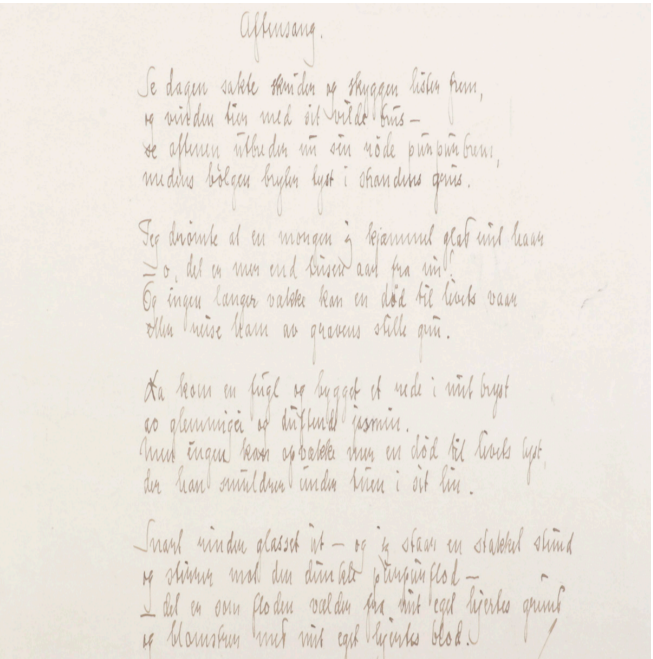 Aftensang.
Se dagen sakte skrider og skyggen lister frem,
og vinden tier med sit vilde brus —
se aftenen utbreder nu sin röde purpurbrem,
medens bölgen bryter lyst i strandens grus.
Jeg drömte at en morgen jeg kjæmmet glat mit haar
— o, det er mer end tusen aar fra nu!
Og ingen længer vække kan en död til livets vaar
eller reise ham av gravens stille gru.
Da kom en fugl og bygget et rede i mit bryst
av glemmigei og duftende jasmin.
Men ingen kan opvække mer en död til livets lyst,
der han smuldrer under tuen i sit lin.
Snart rinder glasset ut — og jeg staar en stakket stund
og stirrer mot den dunkle purpurflod —
— det er som floden vælder fra mit eget hjertes grund
og blomstrer med mit eget hjertes blod.